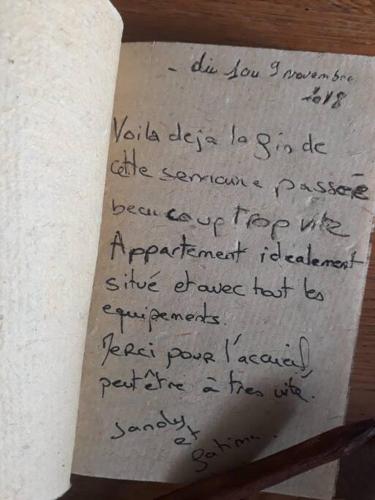 - du 1 au 9 novembre
2018
Voila deja la fin de
cette semaine passée
beaucoup trop vite
Appartement idealement
situé et avec tout les
equipements.
Merci pour l'accueil,
peut être à tres vite.
Sandy
et
Fatima.